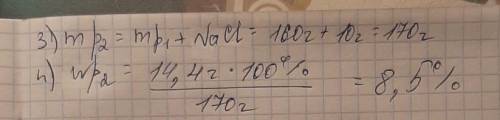 3) mp₂ = mp₁ + NaCl = 160г + 10г = 170г
4) wp₂ = 14,4г · 100% / 170г = 8,5%